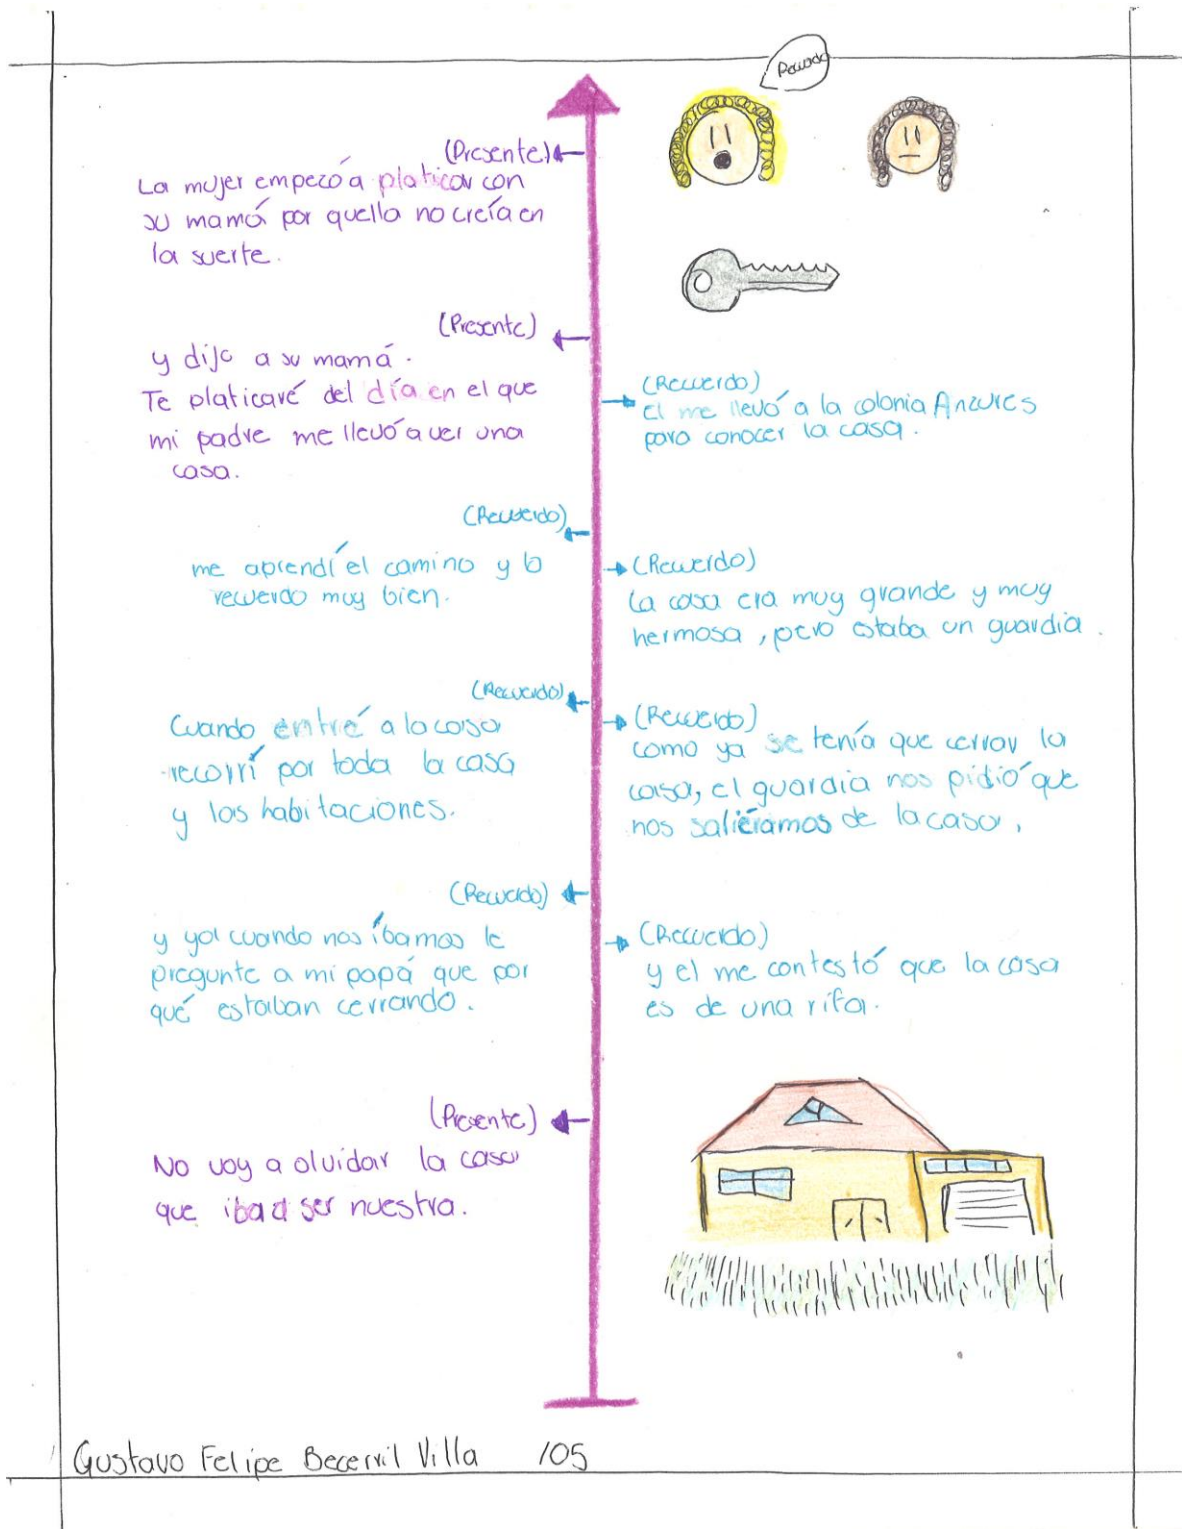 Recuerdo
(Presente)
La mujer empezó a platicar con
su mamá por quella no creía en
la suerte.
(Presente)
y dijo a su mamá.
Te platicaré del día en el que
mi padre me llevó a ver una
casa.
(Recuerdo)
el me llevó a la colonia Anzures
para conocer la casa.
(Recuerdo)
me aprendí el camino y lo
recuerdo muy bien.
(Recuerdo)
la casa era muy grande y muy
hermosa, pero estaba un guardia.
(Recuerdo)
Cuando entré a la casa
recorrí por toda la casa
y las habitaciones.
(Recuerdo)
como ya se tenía que cerrar la
casa, el guardia nos pidió que
nos saliéramos de la casa,
(Recuerdo)
y ya cuando nos íbamos le
pregunte a mi papá que por
qué estaban cerrando.
(Recuerdo)
y el me contestó que la casa
es de una rifa.
(Presente)
No voy a olvidar la casa
que iba a ser nuestra.
Gustavo Felipe Becerril Villa 105